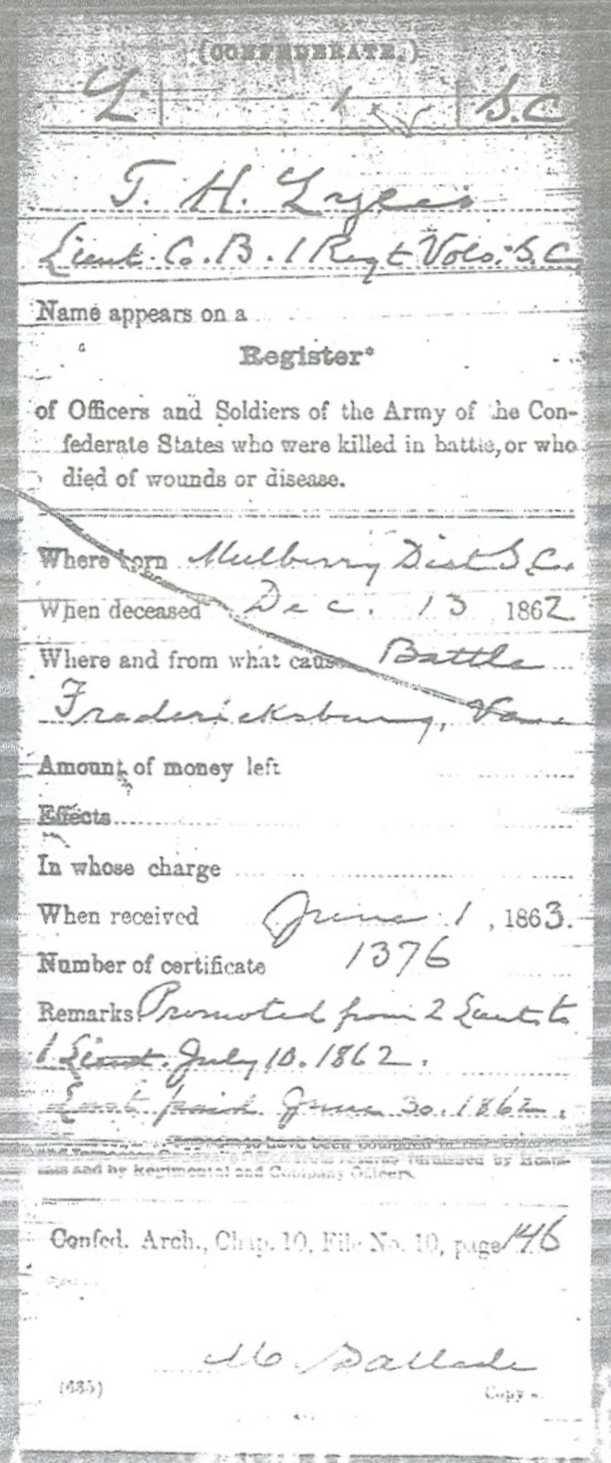 (CONFEDERATE.)
L. 1 S.C.
T. H. Lyles
Lieut. Co. B. 1 Regt Vols. S.C.
Name appears on a
Register*
of Officers and Soldiers of the Army of the Con-
federate States who were killed in battle, or who
died of wounds or disease.
Where born Mulberry Dist S.C.
When deceased Dec. 13, 1862
Where and from what cause Battle
Fradericksburg, Va
Amount of money left
Effects
In whose charge
When received June 1, 1863.
Number of certificate 1376
Remarks: Promoted from 2 Lieut. to
1 Lieut. July 10. 1862.
Last paid June 30. 1862.
to have been compiled in the
returns furnished by
and by Regimental and Company Officers.
Confed. Arch., Chap. 10, File No. 10, page 146
(635)
Copy